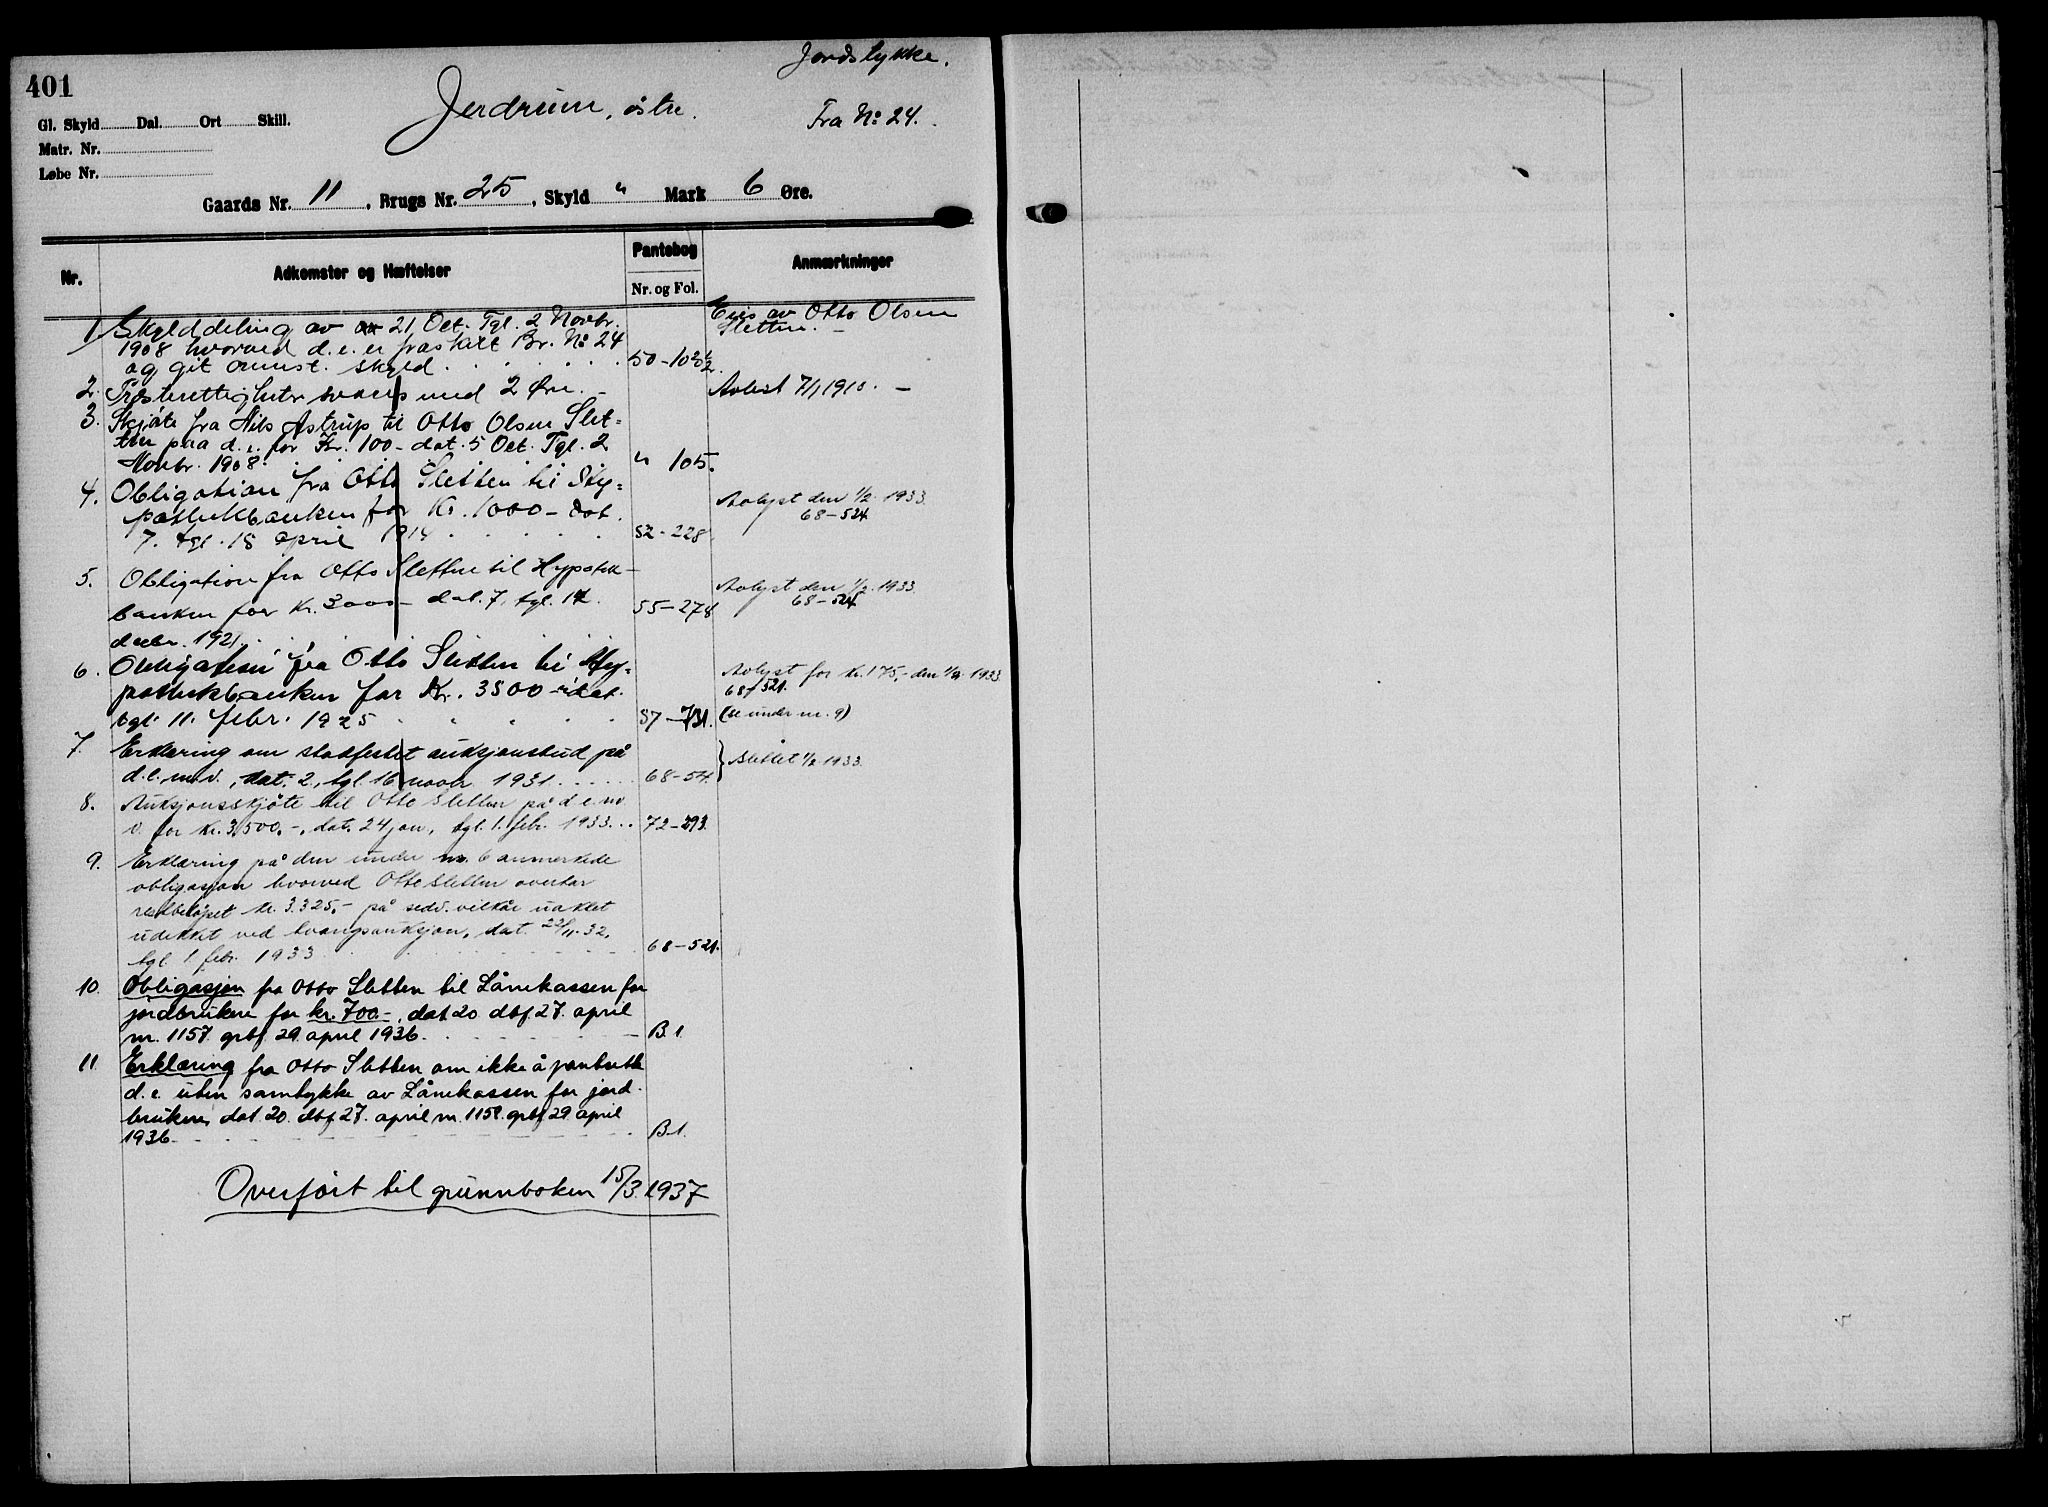 401
Jordstykke.
Jerdrum, östre.
Fra No 24.
Gl. Skyld Dal. Ort Skill.
Matr. Nr.
Løbe Nr.
Gaards Nr. 11, Brugs Nr. 25, Skyld " Mark 6 Øre.
Nr. Adkomster og Hæftelser Pantebog Anmærkninger
Nr. og Fol.
1. Skylddeling av 21 Oct. Tgl. 2 Novbr. Eies av Otto Olsen
1908 hvorved d. e. er fraskilt Br. No 24 Sletten. –
og git ommst. skyld. 50-102½.
2. Præsterettigheter svares med 2 Øre. – Avløst 7/1 1910. –
3. Skjöte fra Nils Astrup til Otto Olsen Slet=
ten paa d. e. for Kr. 100 – dat. 5 Oct. Tgl. 2
Novbr. 1908. " 105.
4. Obligation fra Otto Sletten til Hy= Avlyst den 1/2. 1933.
pothekbanken for Kr. 1000 – dat. 68-521.
7. tgl. 18 april 1914 52-228
5. Obligation fra Otto Sletten til Hypotek- Avlyst den 1/2. 1933.
banken for Kr. 3000 – dat. 7. tgl. 12. 55-278 68-521
decbr. 1921.
6. Obligation fra Otto Sletten til Hy= Avlyst for kr. 175,- den 1/2. 1933.
pothekbanken for Kr. 3500 – dat. 68-521.
tgl. 11. febr. 1925 57-731. (se under nr. 9)
7. Erklæring om stadfestet auksjonsbud på } Slettet 1/2 1933.
d.e. m.v., dat. 2, tgl. 16 novbr. 1931. 68-54.
8. Auksjonsskjöte til Otto Sletten på d.e. m.
v. for kr. 3.500.-, dat. 24 jan, tgl. 1. febr. 1933... 72-293.
9. Erklæring på den under nr. 6 anmerkede
obligasjon hvorved Otto Sletten overtar
restbeløpet kr. 3.325,- på sedv. vilkår uaktet
udekket ved tvangsauksjon, dat. 22/11. 32,
tgl. 1. febr. 1933. 68-521.
10. Obligasjon fra Otto Sletten til Lånekassen for
jordbrukere for kr. 700.-, dat 20. dbf. 27. april
nr. 1157. grbf. 29. april 1936. B.1.
11 Erklæring fra Otto Sletten om ikke å pantsette
d. e. uten samtykke av Lånekassen for jord-
brukere, dat. 20. dbf. 27. april nr. 1158. grbf 29. april
1936 B.1.
Overført til grunnboken 15/3. 1937